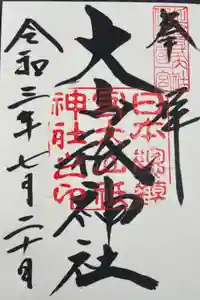 奉拝
大山祇神社
令和三年七月二十日
日本總鎮
神社之印